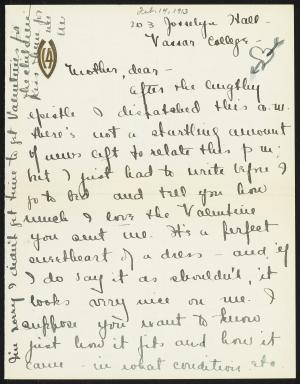 Feb. 14, 1913
203 Josselyn Hall -
Vassar College -
Mother, dear -
After the lengthy
epistle I dispatched this a.m.
there's not a startling amount
of news left to relate this p.m.
but I just had to write before I
go to bed and tell you how
much I love the Valentine
you sent me. It's a perfect
sweetheart of a dress - and, if
I do say it as shouldn't, it
looks very nice on me. I
suppose you want to know
just how it fits and how it
came - in what condition etc.
I'm sorry I didn't get time to get Valentines for
the children.
Kiss them for
me